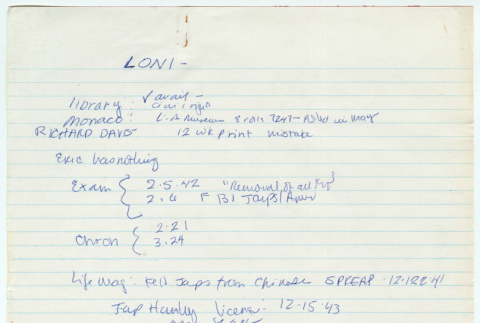 LONI -
library: √ avail -
Monaco: L.A Museum 8
RICHARD DAVIS 12 wk print mistake
Eric has nothing
Exam { 2.5.42 "Removal of all
2.6 FBI Japs/Amer
Chron { 2.21
3.24
Life Mag: Tell Japs from Chinese SPREAD 12.22.41
Jap Hunting License: 12-15.43